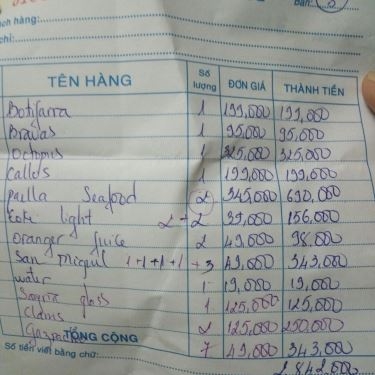 ách hàng:
chỉ:
TÊN HÀNG Số lượng ĐƠN GIÁ THÀNH TIỀN
Botifarra 1 199,000 199,000
Bravas 1 95,000 95,000
Octopus 1 325,000 325,000
Callos 1 199,000 199,000
Paella Seafood 2 345,000 690,000
Coke light 2+2 39,000 156,000
Oranger juice 2 49,000 98,000
San Miguel 1+1+1+1+3 49,000 343,000
water 1 19,000 19,000
Sagria glass 1 125,000 125,000
clams 2 125,000 250,000
Gazpacho 7 49,000 343,000
TỔNG CỘNG 2,842,000
Số tiền viết bằng chữ: